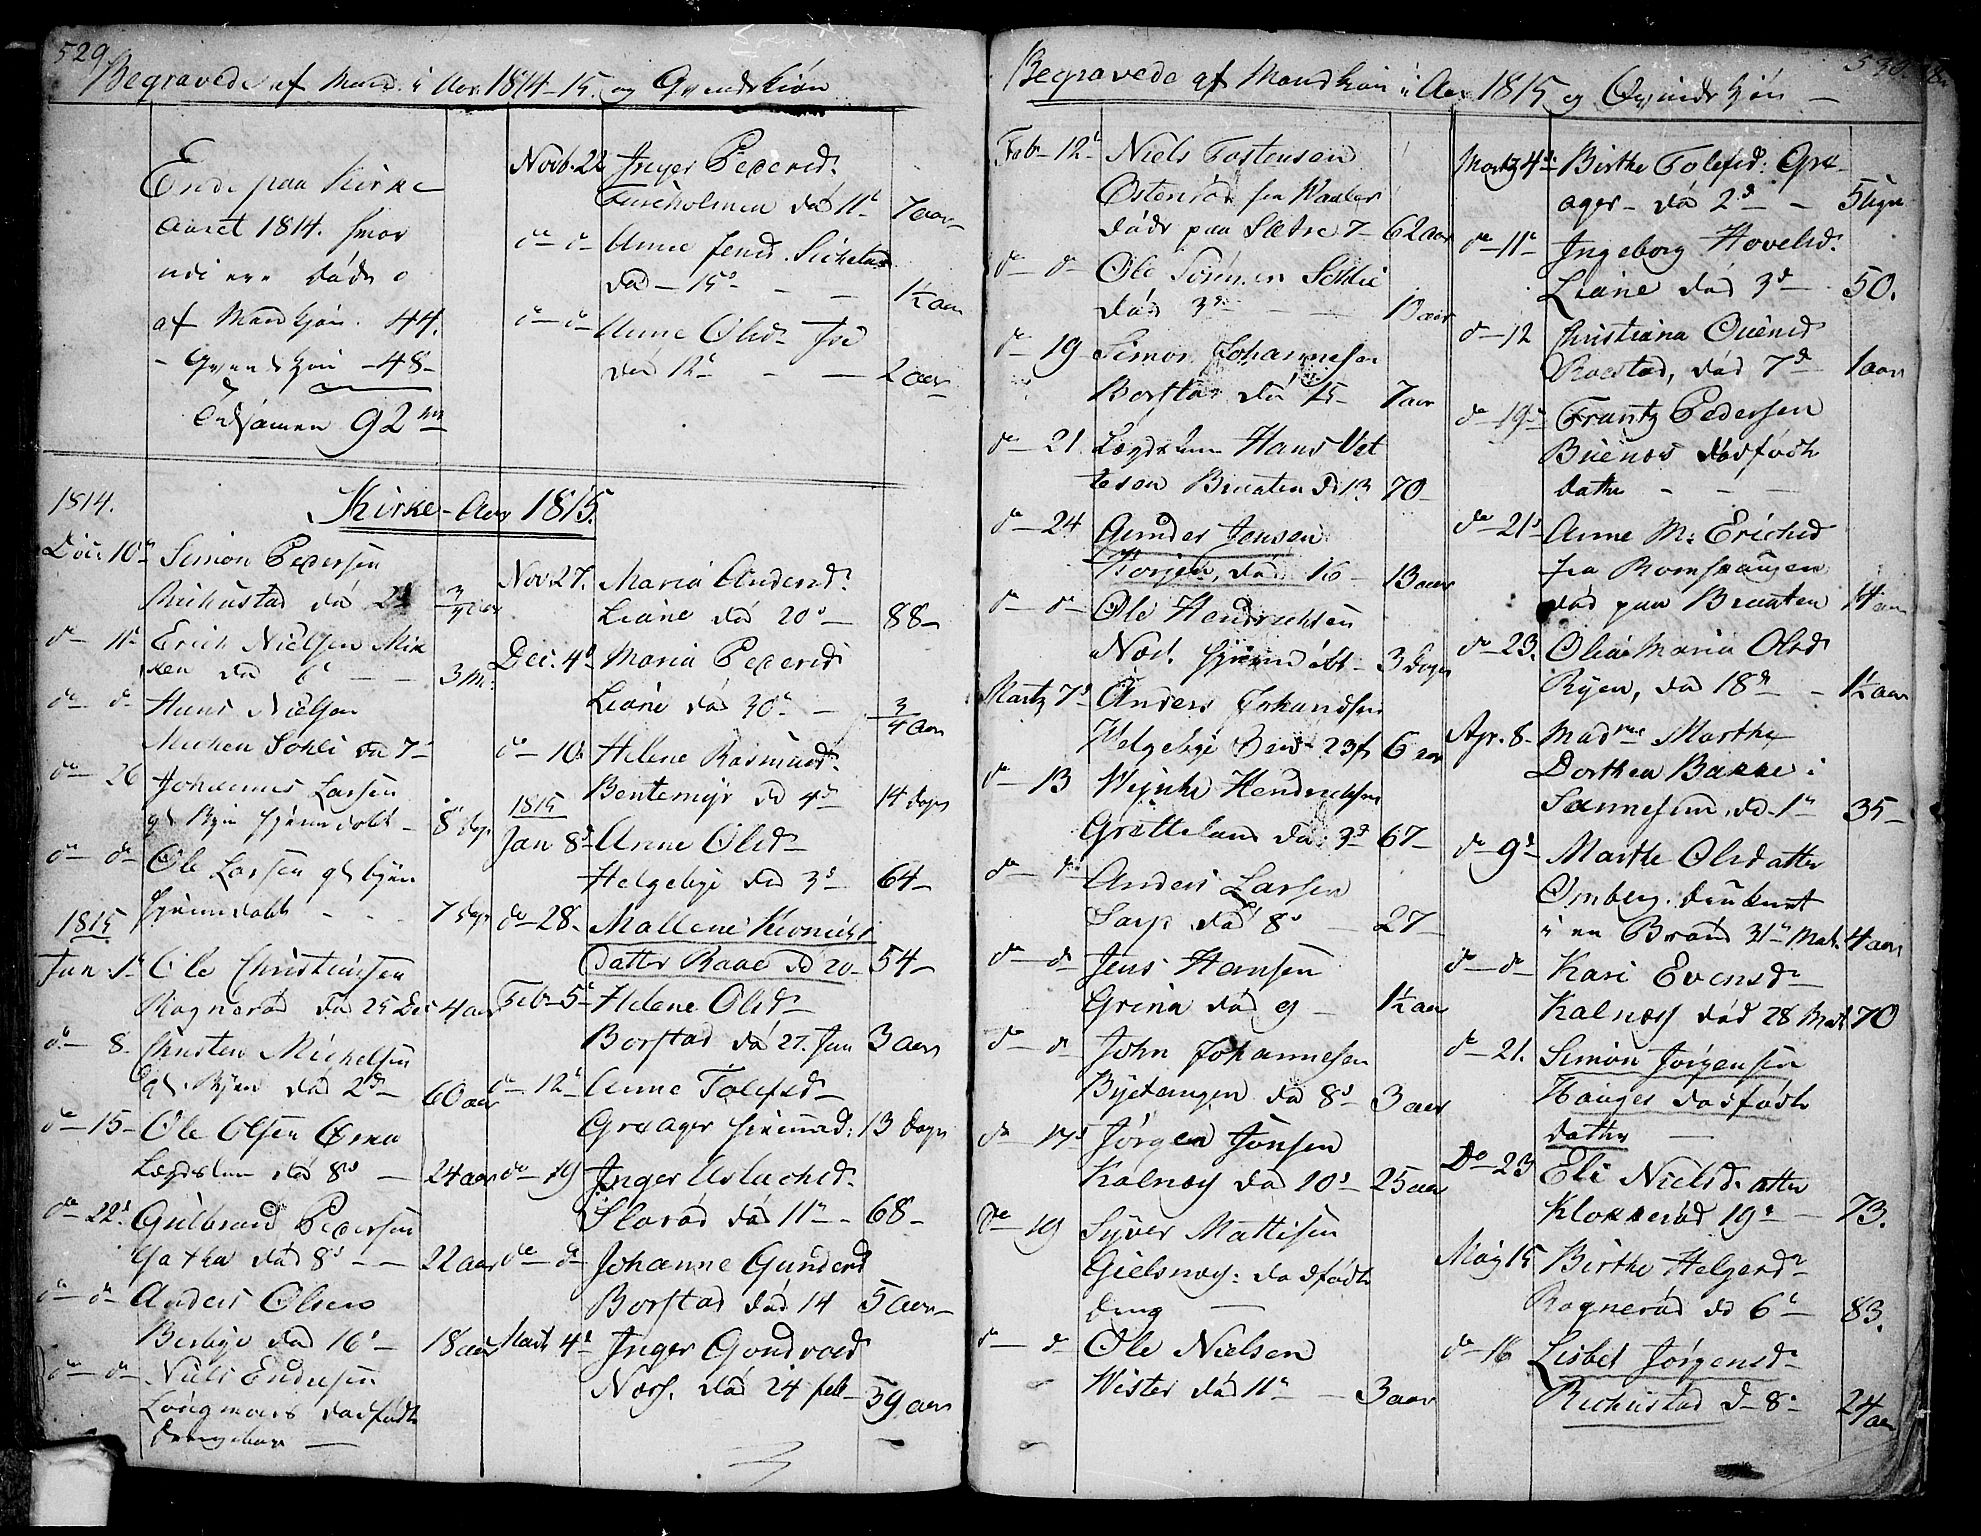 529
Begravede af Mand. i Aar. 1814-15. og Qvindekiön
Ende paa Kirke
Aaret 1814. hvor
udi ere døde
af Mandkjön. 44.
- Qvindekjön - 48 -
Tilsammen 92
Novb. 22 Inger Pederd.
Fureholmen død 11t 7 aar
do do Anne Jensd.
død - 15d - - 1½ aar
do do Anne Olsd.
død 12t - - 2 aar
Kirke-Aar 1815.
1814.
Dec. 10d Simon Pedersen
Richustad død 2d 3/4 aar
do 11t Erich Nielsen Mik
ken død 6t - - 3 M.
do do Hans Nielsen
Micken Sohli død 7d
do 26 Johannes Larsen
hjemdøbt - 8 dage
do do Ole Larsen
hjemdøbt - - 7 dage
1815
Jan. 1d Ole Christensen
Ragnerød død 25 Dec 4 aar
do 8. Christen Michelsen
død 2d 60 aar
do 15 - Ole Olsen
Lægdslem død 8d - 24 aar
do 22d Gulbrand Pedersen
død 8d - - 22 aar
do do Anders Olsen
Berbye død 16d - 18 aar
do do Niels Endresen
dødfødt
Drengebarn -
Nov 27. Maria Andersd.
Liane død 20d - 88 -
Dec. 4d Maria Pedersd.
Liane død 30d - 3/4 aar
do - 10d Helene Rasmusd.
Bentemyr død 4d 14 dage
1815
Jan 8d Anne Olsd.
Helgebye død 3d - 64 -
do 28. Mallene
datter Raae død 20 - 54 -
Feb 5d Helene Olsd.
Borstad død 27. Jan 3 aar
do 12t Anne Tolefsd.
Graager hjemmed: 13 dage
do 19 Inger Aslachsd.
Slorød død 11t - 68 -
do do Johanne Gundersd
Borstad død 14 5 aar
Mart 4d Inger Gundersd
Næss. død 24 feb 59 aar
530
Begravede af Mandkön i Aar 1815 og Qvindekjön -
Feb - 12t Niels Torstensen
Østenrød fra Waaler
døde paa Sætre 7 - 62 aar
do do Ole Sörensen Sohlie
død 3d - - 10 aar
do 19 Simon Johannesen
Borstad død 15 - 7 aar
do 21. Lægdslem Hans Vet
tesen Braaten d. 13 70 -
do 24 Gunder Jensen
død 16 - 13 aar
do do Ole Hendrichsen
Næs. hjemmdöbt - 3 dage
Martz 7d Anders Johansen
Helgebye død 23 f. 6 aar
do 13 Hendrichsen
Grötteland død 3d 67 -
do do Anders Larsen
Sarp. død 8d - 27 -
do do Jens Hansen
Grina død 9 - 1½ aar
do do John Johannesen
Byetangen død 8d - 3 aar
do 17d Jørgen Jonsen
Kalnæs død 10d - 25 aar
do 19 Syver Mattisen
Gielsnæs: dødfødt
Dreng -
do do Ole Nielsen
Wister død 11t - 3 aar
Martz 4d Birthe Tolefsd: Gra-
ager - død 2d - 5 Uger
do 11t Ingeborg Hovelsd.
Liane død 3d - 50.
do 12 Christiana Ovensd
Raestad, død 7d - 1 aar
do 19d Frantz Pedersen
Buenæs dødfødt
datter - - -
do 21d Anne M: Erichsd
fra Romshaugen
død paa Braaten 14 aar
do 23. Olia Maria Olsd
Ryen, død 18d - 1½ aar
Apr. 8 - Madme Marthe
Dorthea Bakke i
Sannesund. d. 1d 35 -
do 9d Marthe Olsdatter
Omberg. druknet
i en Brønd 31t Mart. 4 aar
do do Kari Evensd.
Kalnæs død 28 Mart. 70
do 21. Simon Jørgensen
Hauges dødfødt
datter -
Do 23 Eli Nielsdatter
Klokkerød 19d - 73.
May 15 Birthe Helgesd.
Ragnerød død 6t - 83.
do 16 Lisbet Jørgensd.
Richustad d. 8d - 24 aar